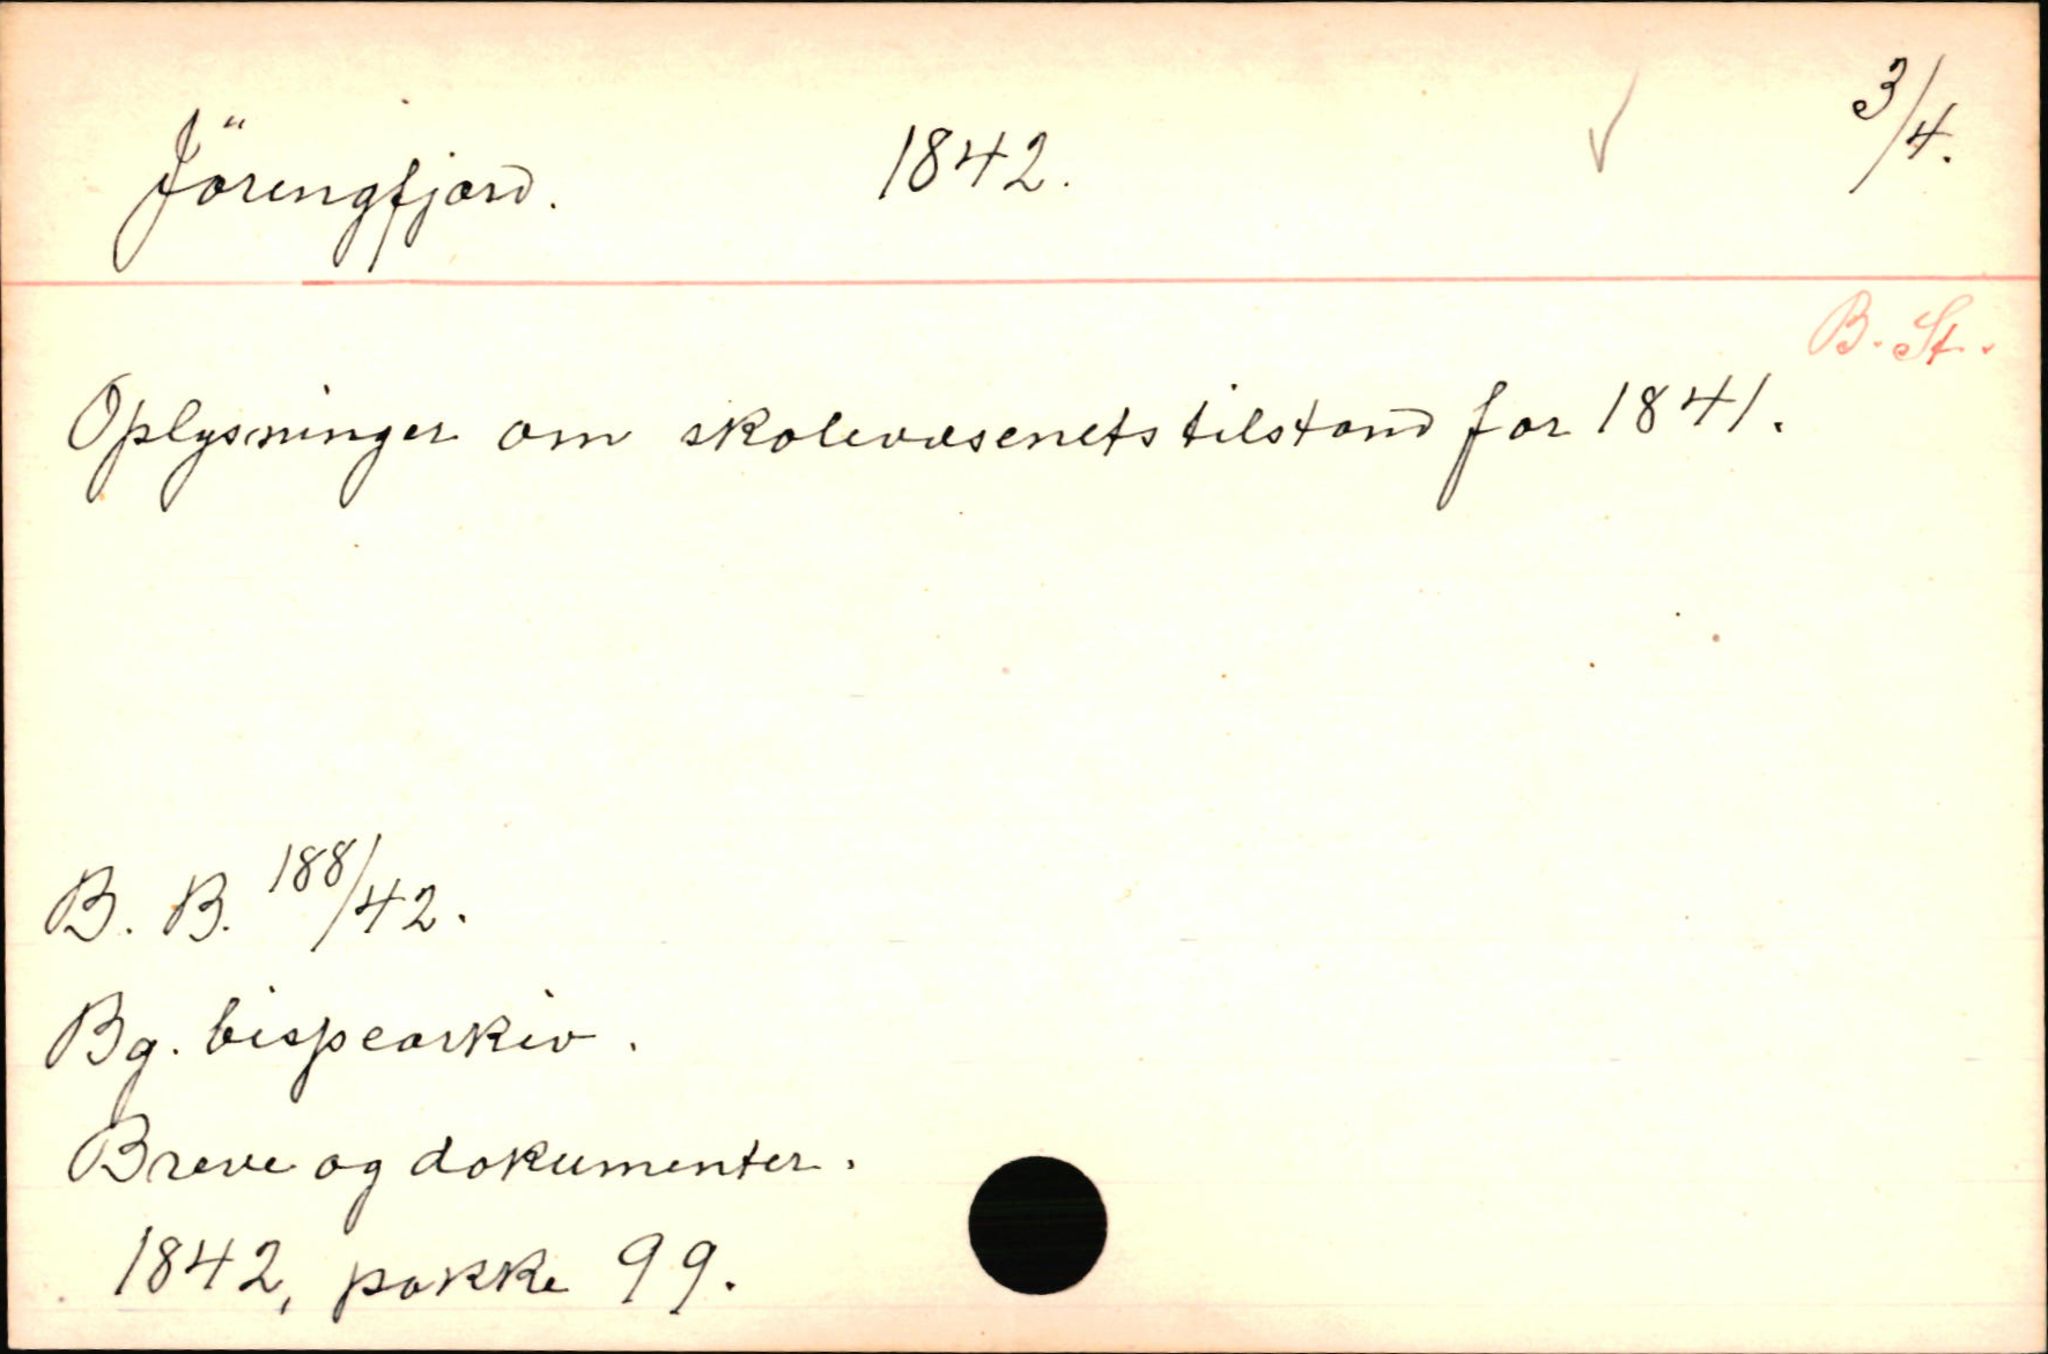 Jöringfjord. 1842. 3/4.
B. St.
Oplysninger om skolevæsenets tilstand for 1841.
B. B. 188/42.
Bg. bispearkiv.
Breve og dokumenter.
1842, pakke 99.